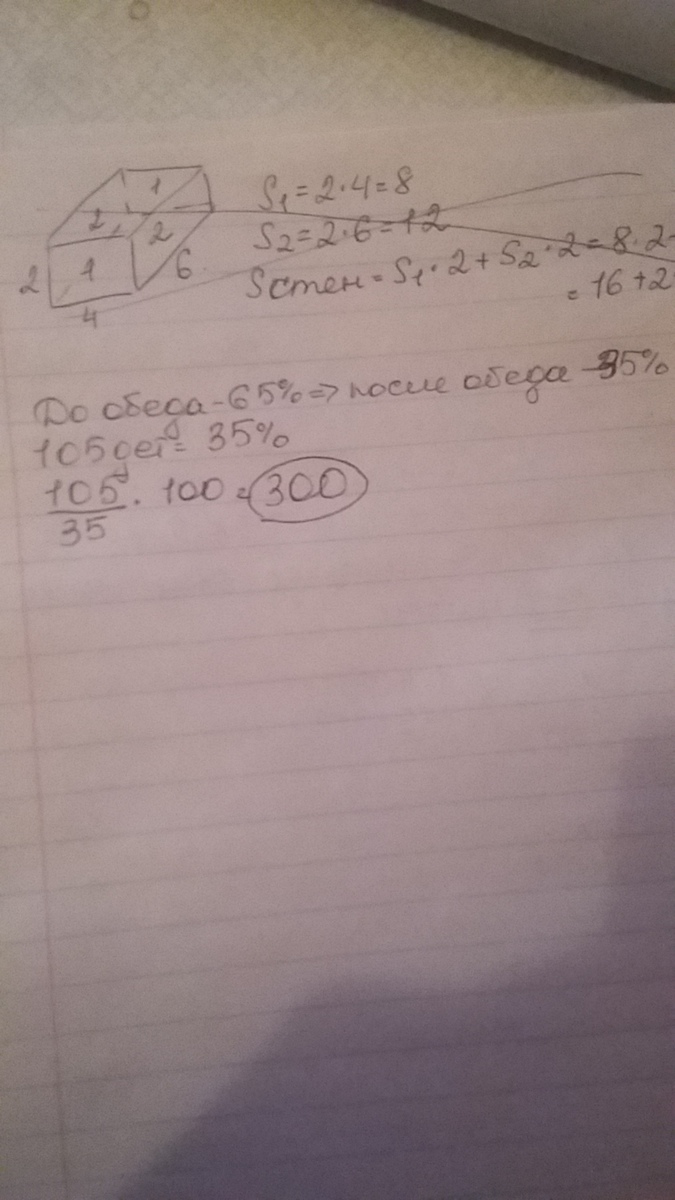 1
2
2
2
1
6
4
S₁ = 2·4 = 8
S₂ = 2·6 = 12
Sстен = S₁·2 + S₂·2 = 8·2
= 16 + 2
До обеда - 65% => после обеда - 35%
105 дет = 35%
105/35 · 100 = 300